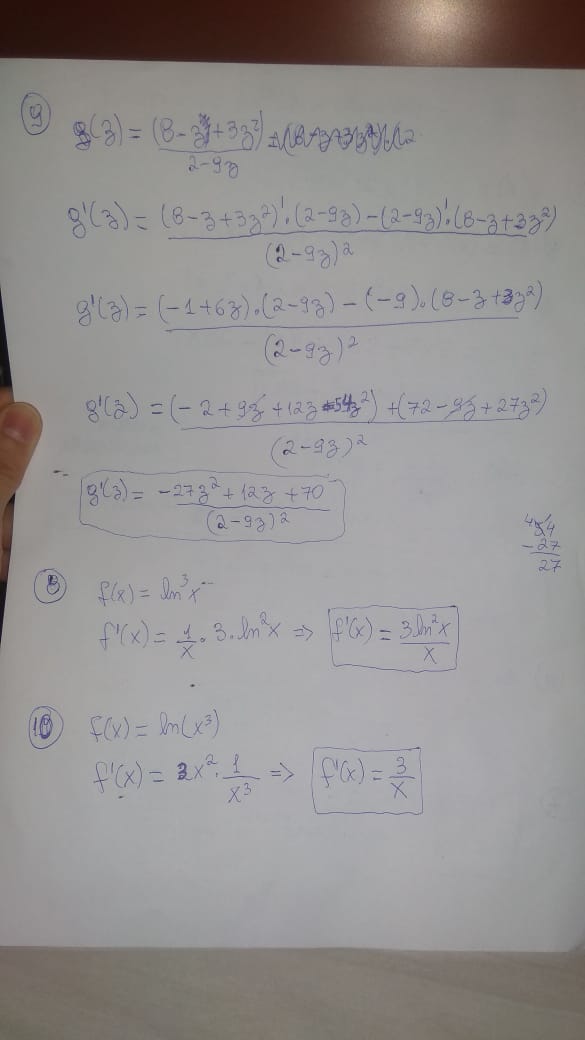 9
g(z) = (8-z+3z²)/(2-9z)
g'(z) = ((8-z+3z²)'.(2-9z)-(2-9z)'.(8-z+3z²))/(2-9z)²
g'(z) = ((-1+6z).(2-9z) - (-9).(8-z+3z²))/(2-9z)²
g'(z) = ((-2+9z+12z-54z²)+(72-9z+27z²))/(2-9z)²
g'(z) = (-27z²+12z+70)/(2-9z)²
54
-27
27
8
f(x) = ln³x
f'(x) = 1/x . 3.ln²x => f'(x) = 3ln²x/x
10
f(x) = ln(x³)
f'(x) = 3x². 1/x³ => f'(x) = 3/x